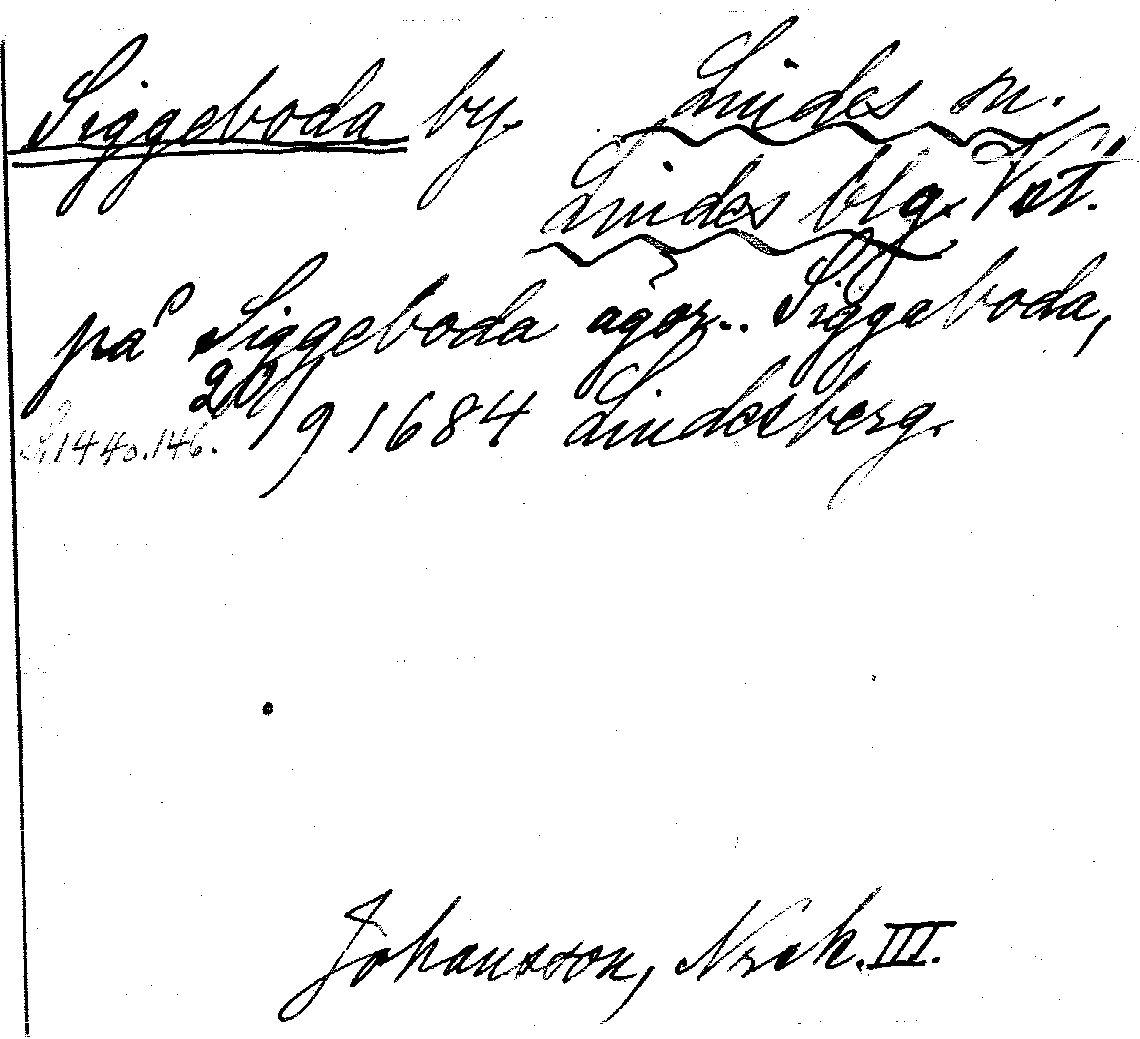 Siggeboda by. Lindes sn.
Lindes blg. Vst.
på Siggeboda ägor.. Siggeboda,
20/9 1684 Lindesberg.
S. 144 o. 146.
Johansson, Nrsk. III.